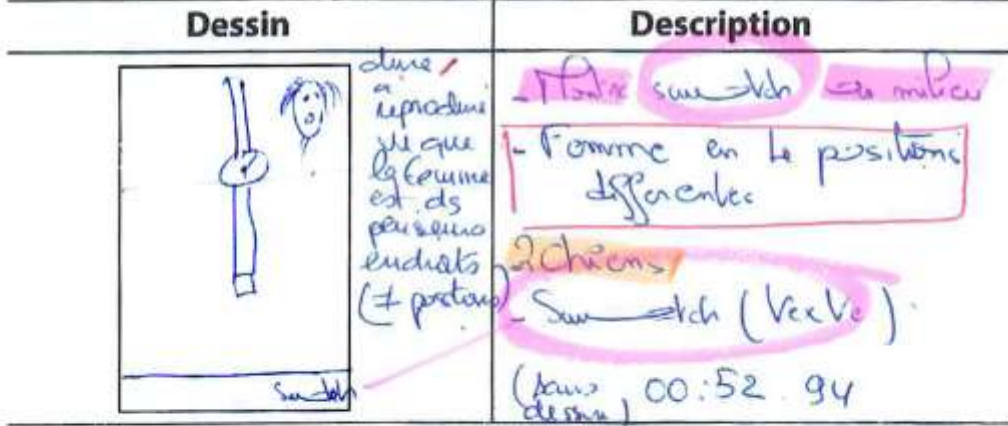 Dessin
dure
à
reproduire
vu que
la femme
est ds
plusieurs
endroits
(≠ positions)
Description
- Montre swatch au milieu
- Femme en positions
différentes
2 chiens
- Swatch (
(sans
dessin) 00:52.94